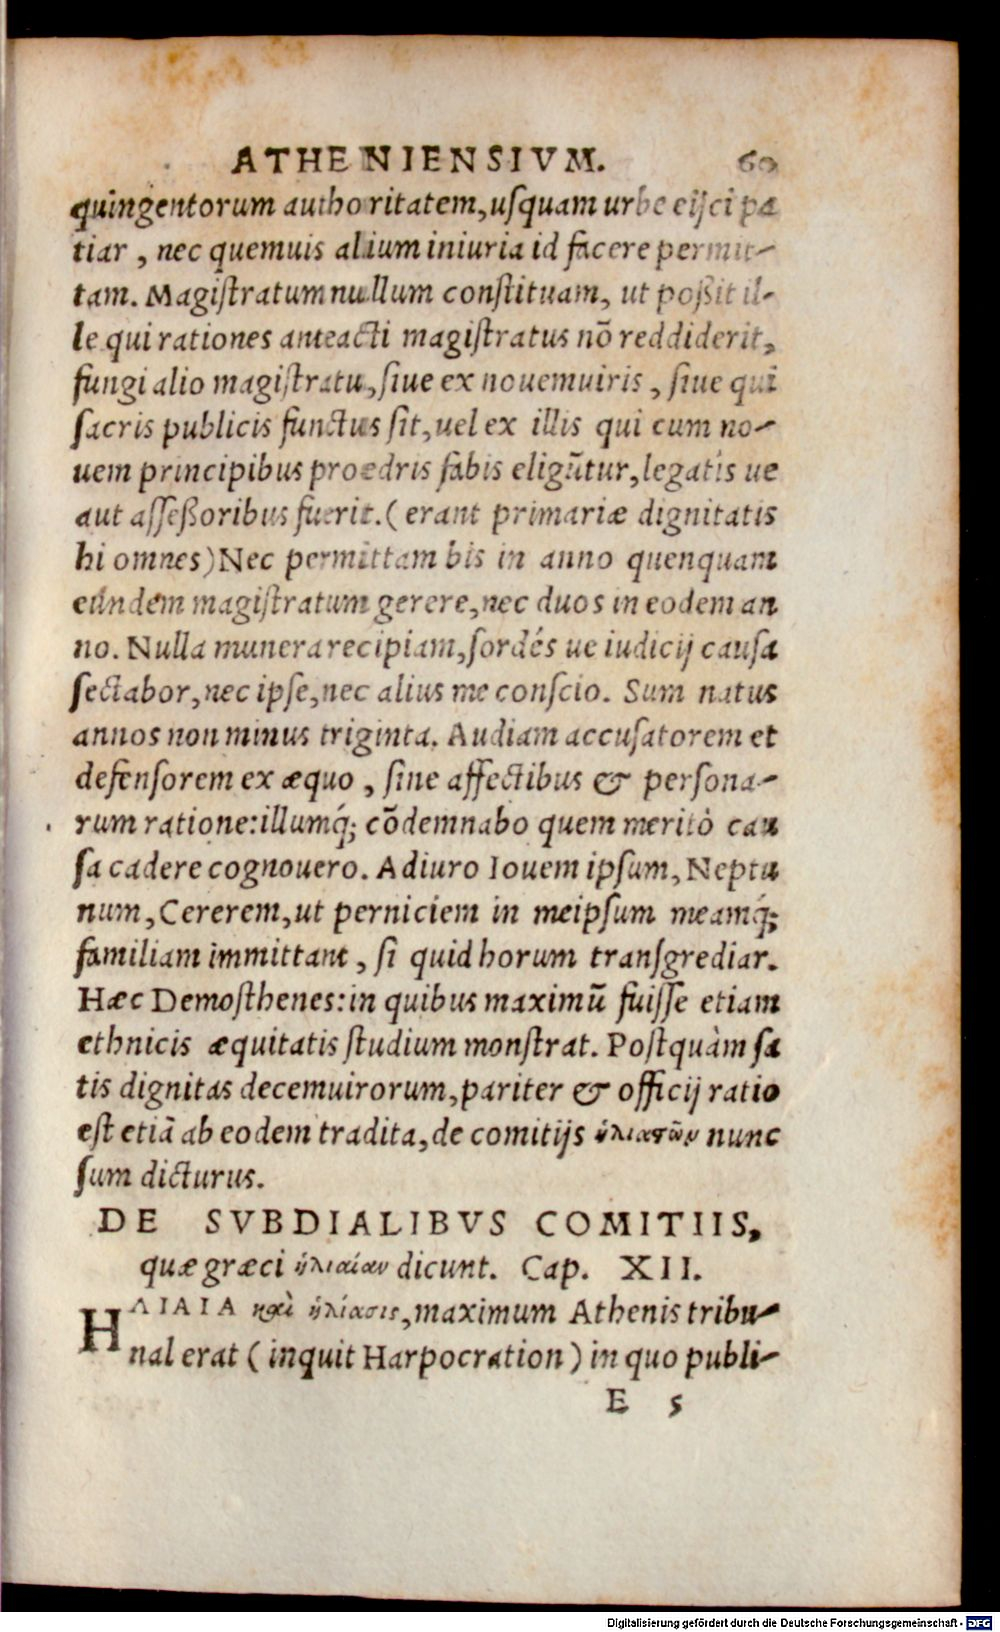 ATHENIENSIVM. 60
quingentorum authoritatem, uſquam urbe eijci pa
tiar, nec quemuis alium iniuria id facere permit-
tam. Magiſtratum nullum conſtituam, ut poßit il-
le qui rationes anteacti magiſtratus nō reddiderit,
fungi alio magiſtratu, ſiue ex nouemuiris, ſiue qui
ſacris publicis functus ſit, uel ex illis qui cum no-
uem principibus proedris fabis eligūtur, legatis ue
aut aſſeßoribus fuerit. (erant primariæ dignitatis
hi omnes) Nec permittam bis in anno quenquam
eundem magiſtratum gerere, nec duos in eodem an
no. Nulla munera recipiam, ſordés ue iudicij cauſa
ſectabor, nec ipſe, nec alius me conſcio. Sum natus
annos non minus triginta. Audiam accuſatorem et
defenſorem ex æquo, ſine affectibus & perſona-
rum ratione: illumq́; cōdemnabo quem meritò cau
ſa cadere cognouero. Adiuro Iouem ipſum, Neptu
num, Cererem, ut perniciem in meipſum meamq́;
familiam immittant, ſi quid horum tranſgrediar.
Hæc Demoſthenes: in quibus maximū fuiſſe etiam
ethnicis æquitatis ſtudium monſtrat. Poſtquàm ſa
tis dignitas decemuirorum, pariter & officij ratio
eſt etiā ab eodem tradita, de comitijs ἡλιαστῶν nunc
ſum dicturus.
DE SVBDIALIBVS COMITIIS,
quæ græci ἡλιαίαν dicunt. Cap. XII.
HΛΙΑΙΑ καὶ ἡλίασις, maximum Athenis tribu-
nal erat (inquit Harpocration) in quo publi-
E 5
Digitalisierung gefördert durch die Deutsche Forschungsgemeinschaft - DFG